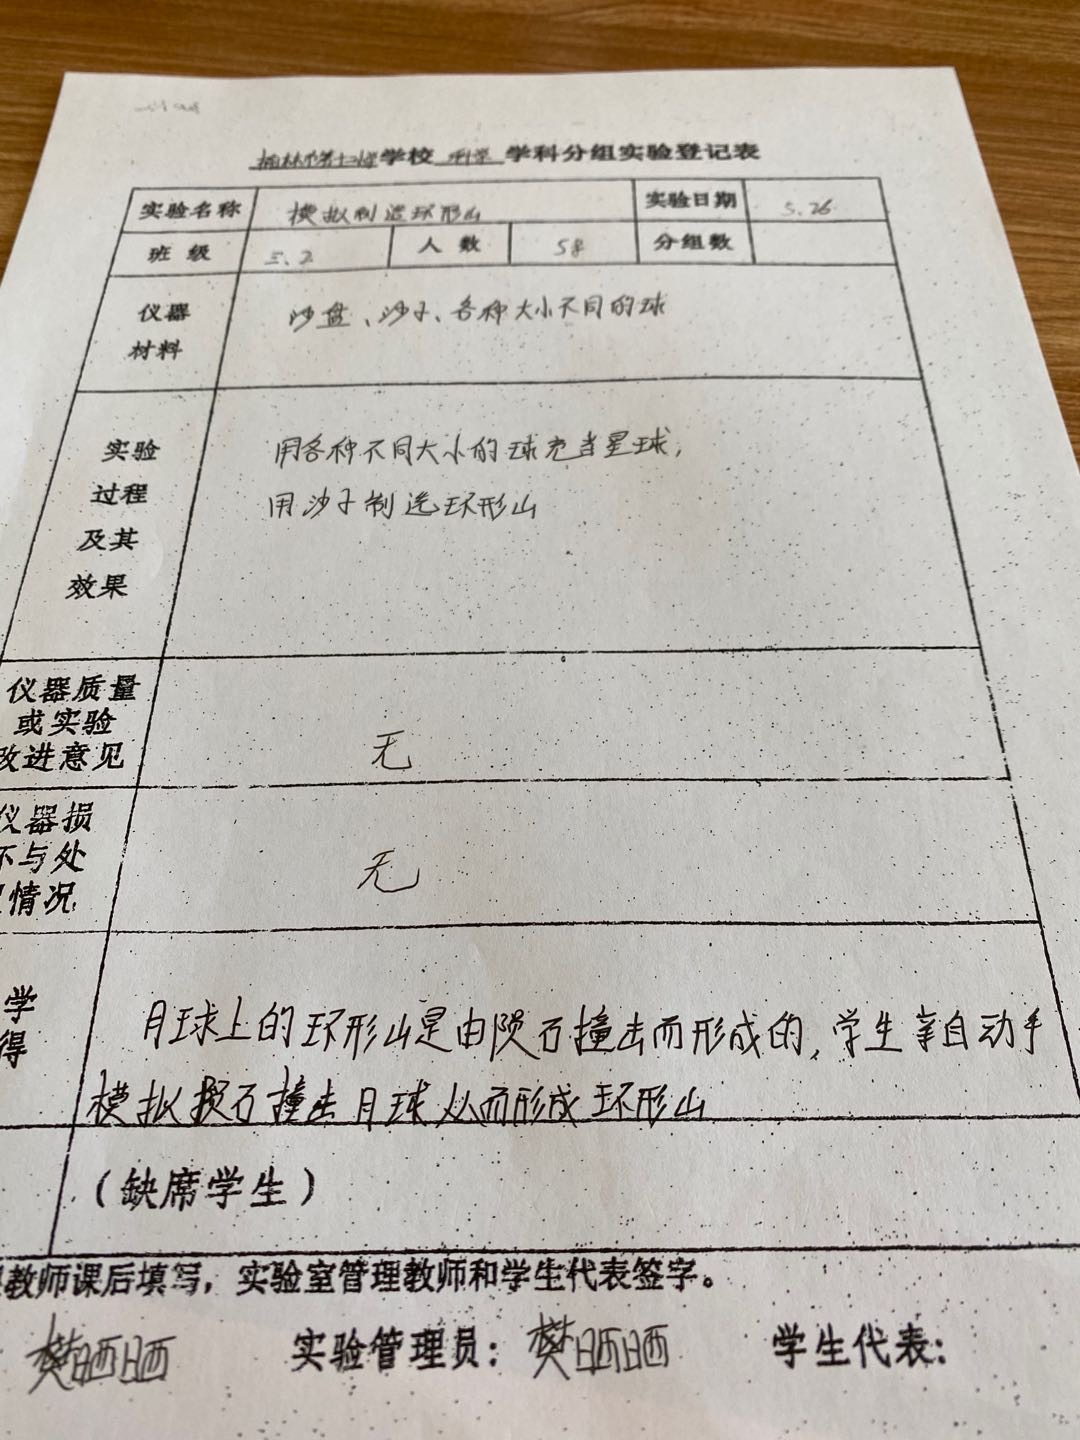 榆林市第十二小学校 科学 学科分组实验登记表
实验名称 模拟制造环形山 实验日期 5.26
班 级 5.2 人 数 58 分组数
仪器
材料
沙盘、沙子、各种大小不同的球
实验
过程
及其
效果
用各种不同大小的球充当星球,
用沙子制造环形山
仪器质量
或实验
改进意见
无
仪器损
坏与处
情况
无
学
得
月球上的环形山是由陨石撞击而形成的,学生亲自动手
模拟陨石撞击月球从而形成环形山
(缺席学生)
教师课后填写,实验室管理教师和学生代表签字。
樊晒晒 实验管理员:樊晒晒 学生代表: